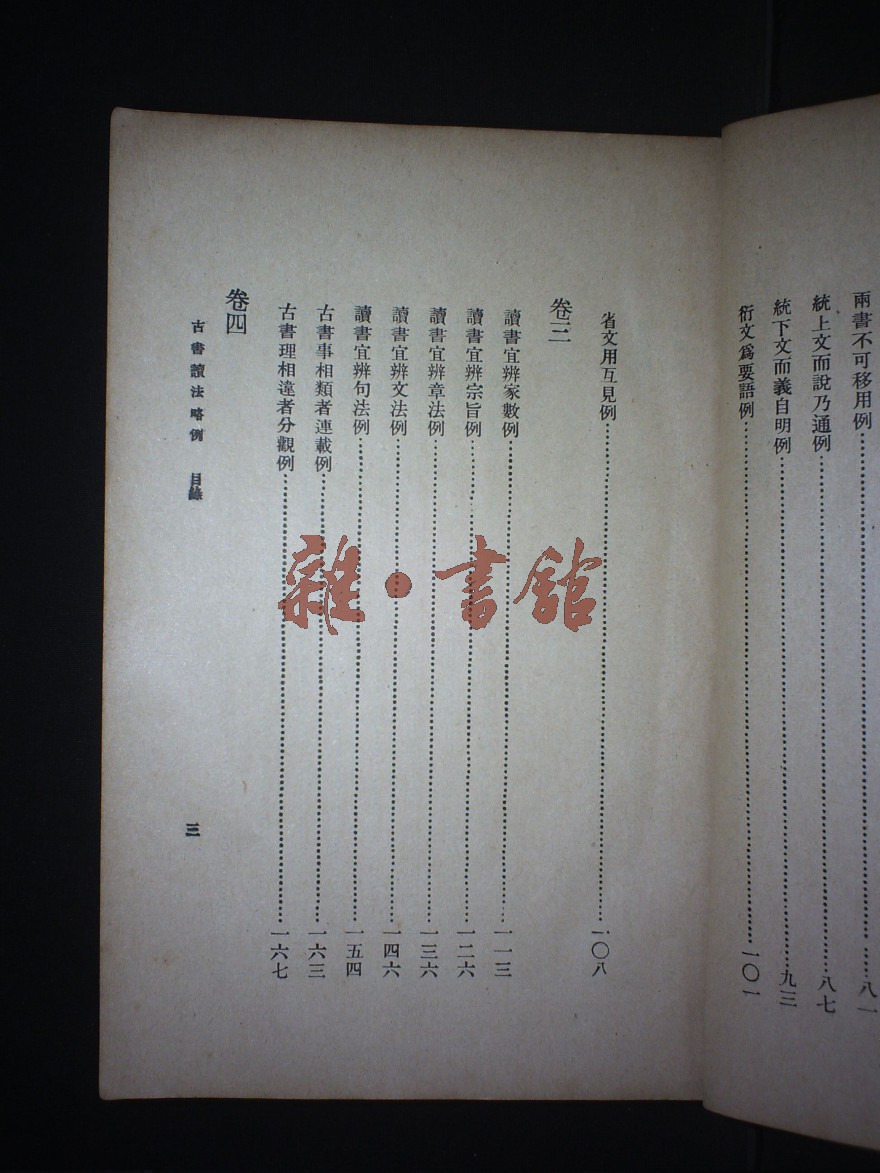 兩書不可移用例……八一
統上文而說乃通例……八七
統下文而義自明例……九三
衍文爲要語例……一〇一
省文用互見例……一〇八
卷三
讀書宜辨家數例……一一三
讀書宜辨宗旨例……一二六
讀書宜辨章法例……一三六
讀書宜辨文法例……一四六
讀書宜辨句法例……一五四
古書事相類者連載例……一六三
古書理相違者分觀例……一六七
卷四
古書讀法略例 目錄 三
雜·書館